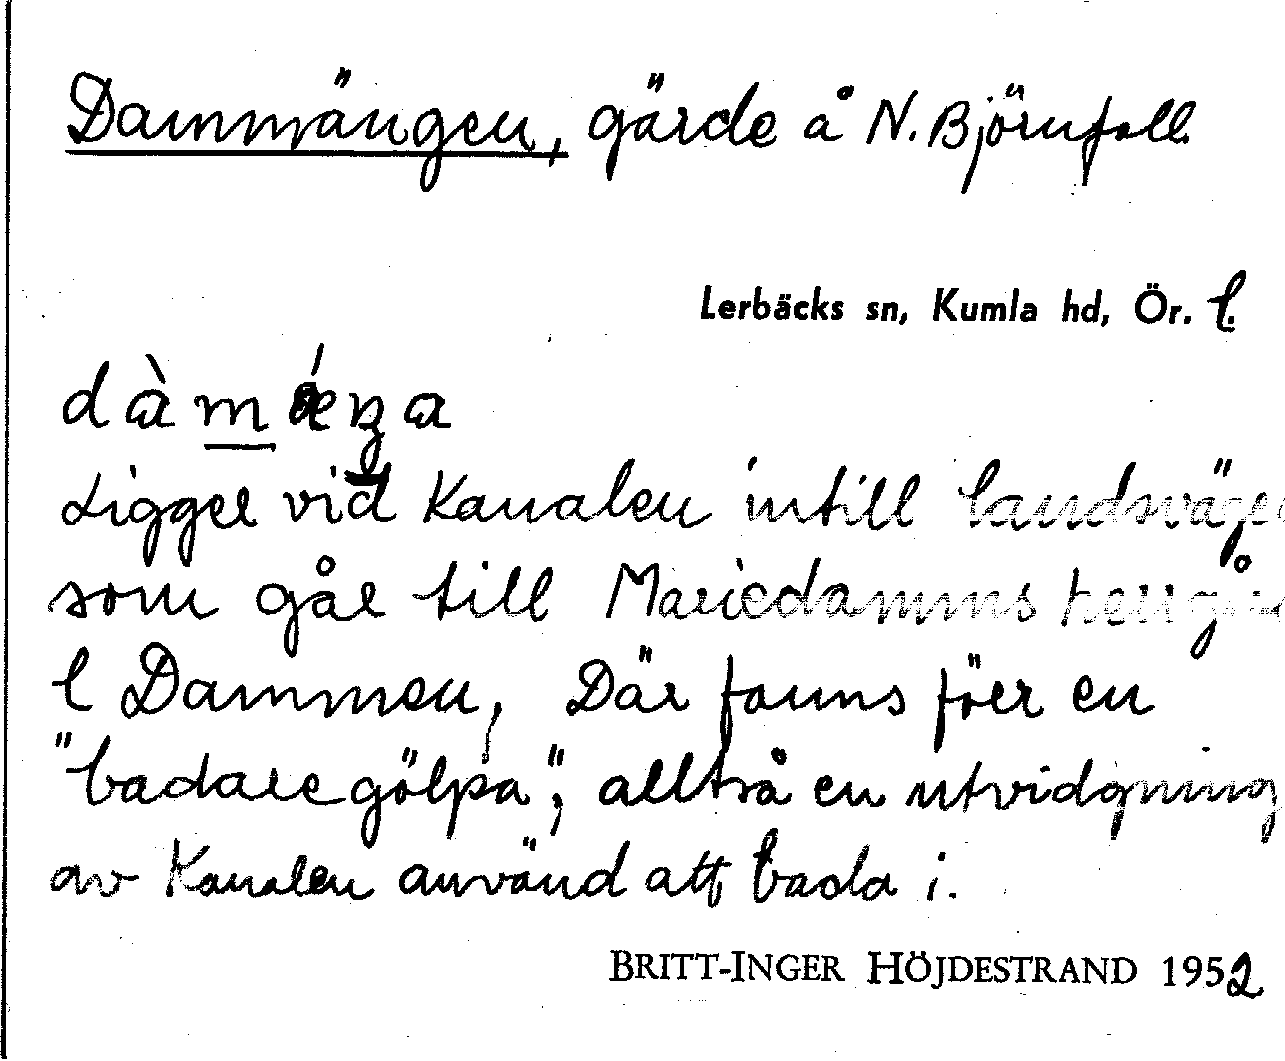 Dammängen, gärde å N. Björnfall
Lerbäcks sn, Kumla hd, Ör. l.
Ligger vid Kanalen intill landsvägen
som går till Mariedamms herrgård
l Dammen, Där fanns förr en
"badaregölpa", alltså en utvidgning
av Kanalen använd att bada i.
BRITT-INGER HÖJDESTRAND 1952